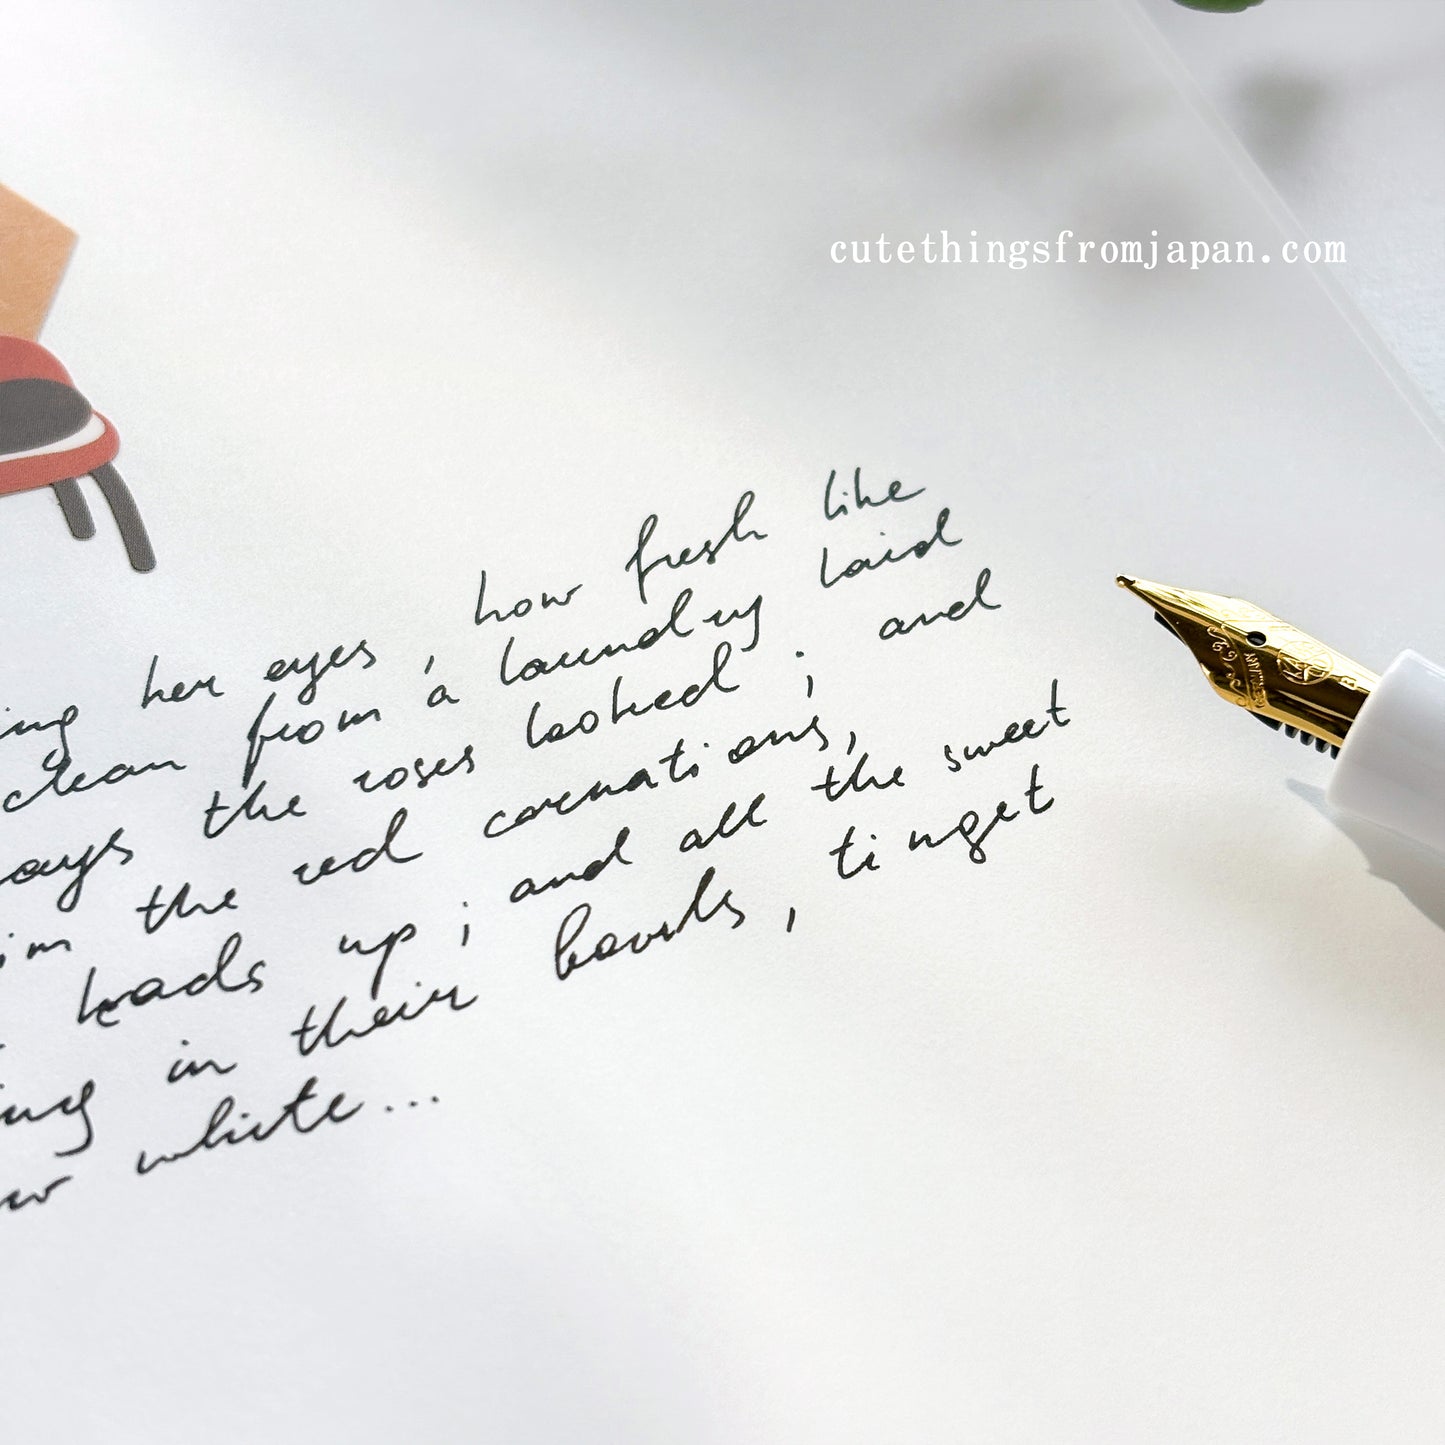 cutethingsfromjapan.com
ing her eyes, how fresh like
clean from a laundry laid
ays the roses looked; and
im the red carnations,
heads up; and all the sweet
ing in their bowls, tinget
w white...
GERMANY
B